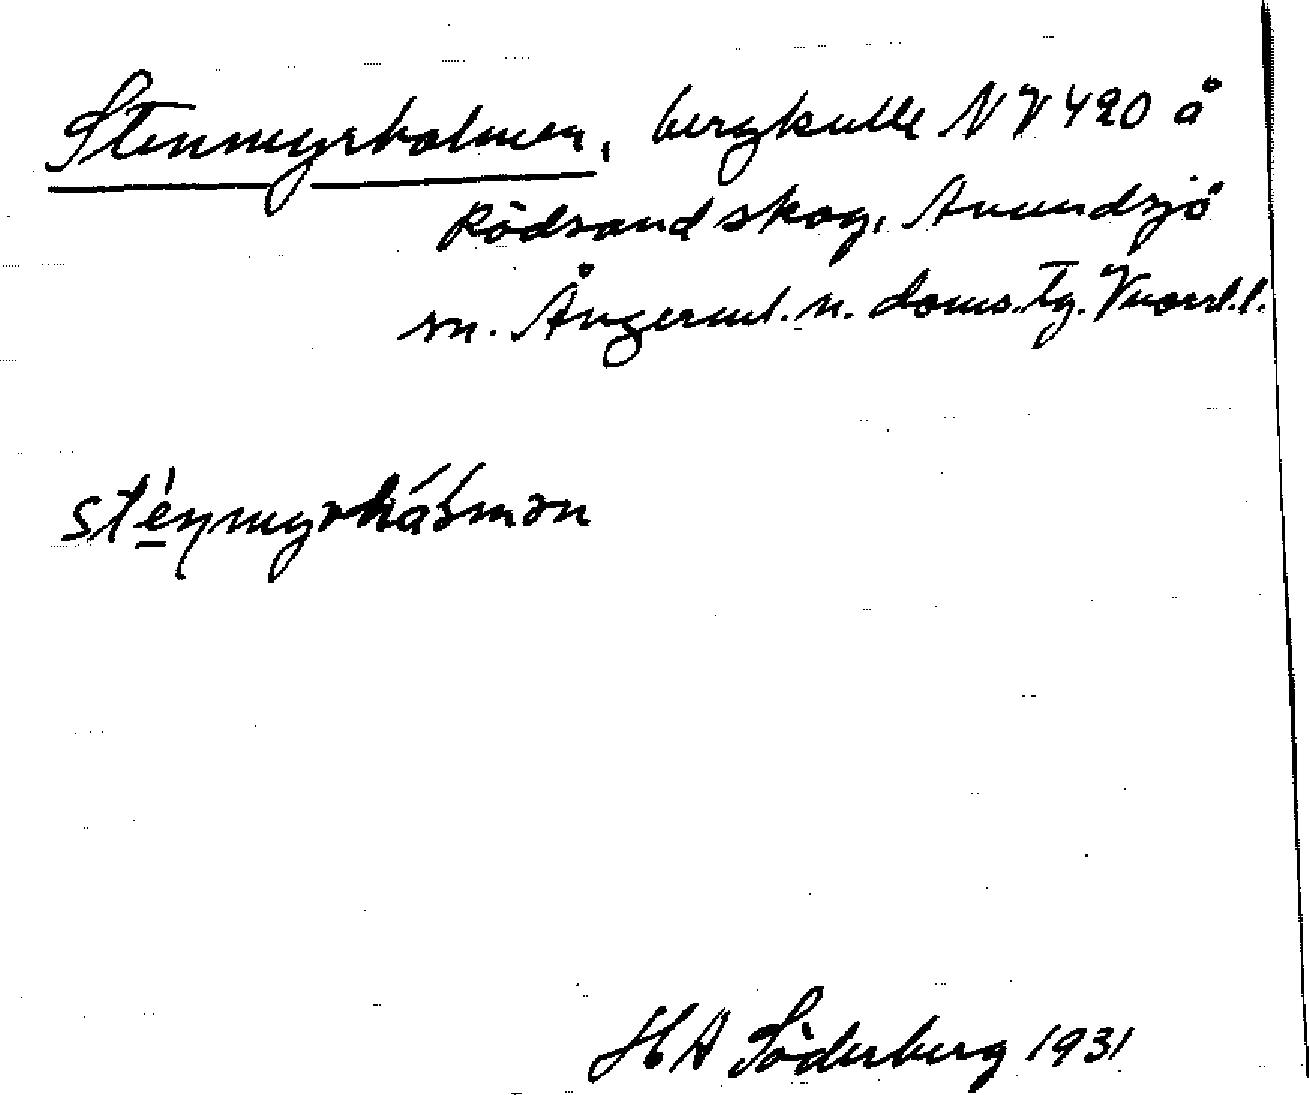 Stenmyrholmen, bergkulle NV 420 å
Rödvand skog, Anundsjö
sn. Ångerml. n. doms. Tg. Vnorrl. l.
sténmyrhåɷmən
HA Söderberg 1931